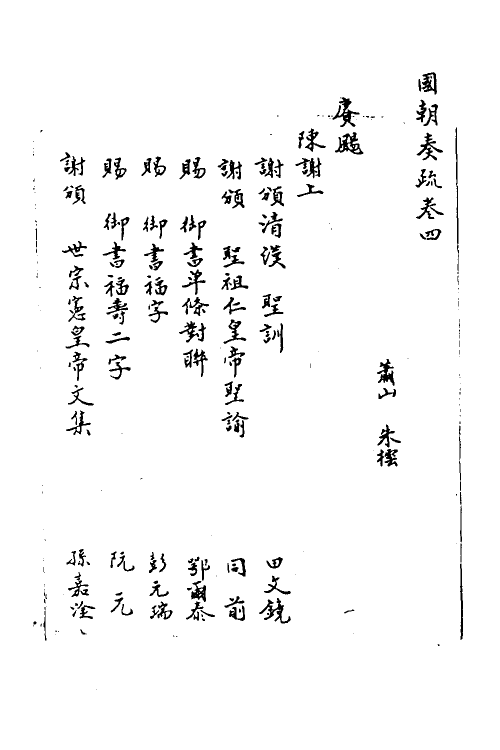 國朝奏疏卷四
蕭山 朱橒
賡颺
陳謝上
謝頒清漢 聖訓 田文鏡
謝頒 聖祖仁皇帝聖諭 同前
賜 御書單條對聯 鄂爾泰
賜 御書福字 彭元瑞
賜 御書福壽二字 阮元
謝頒 世宗憲皇帝文集 孫嘉淦